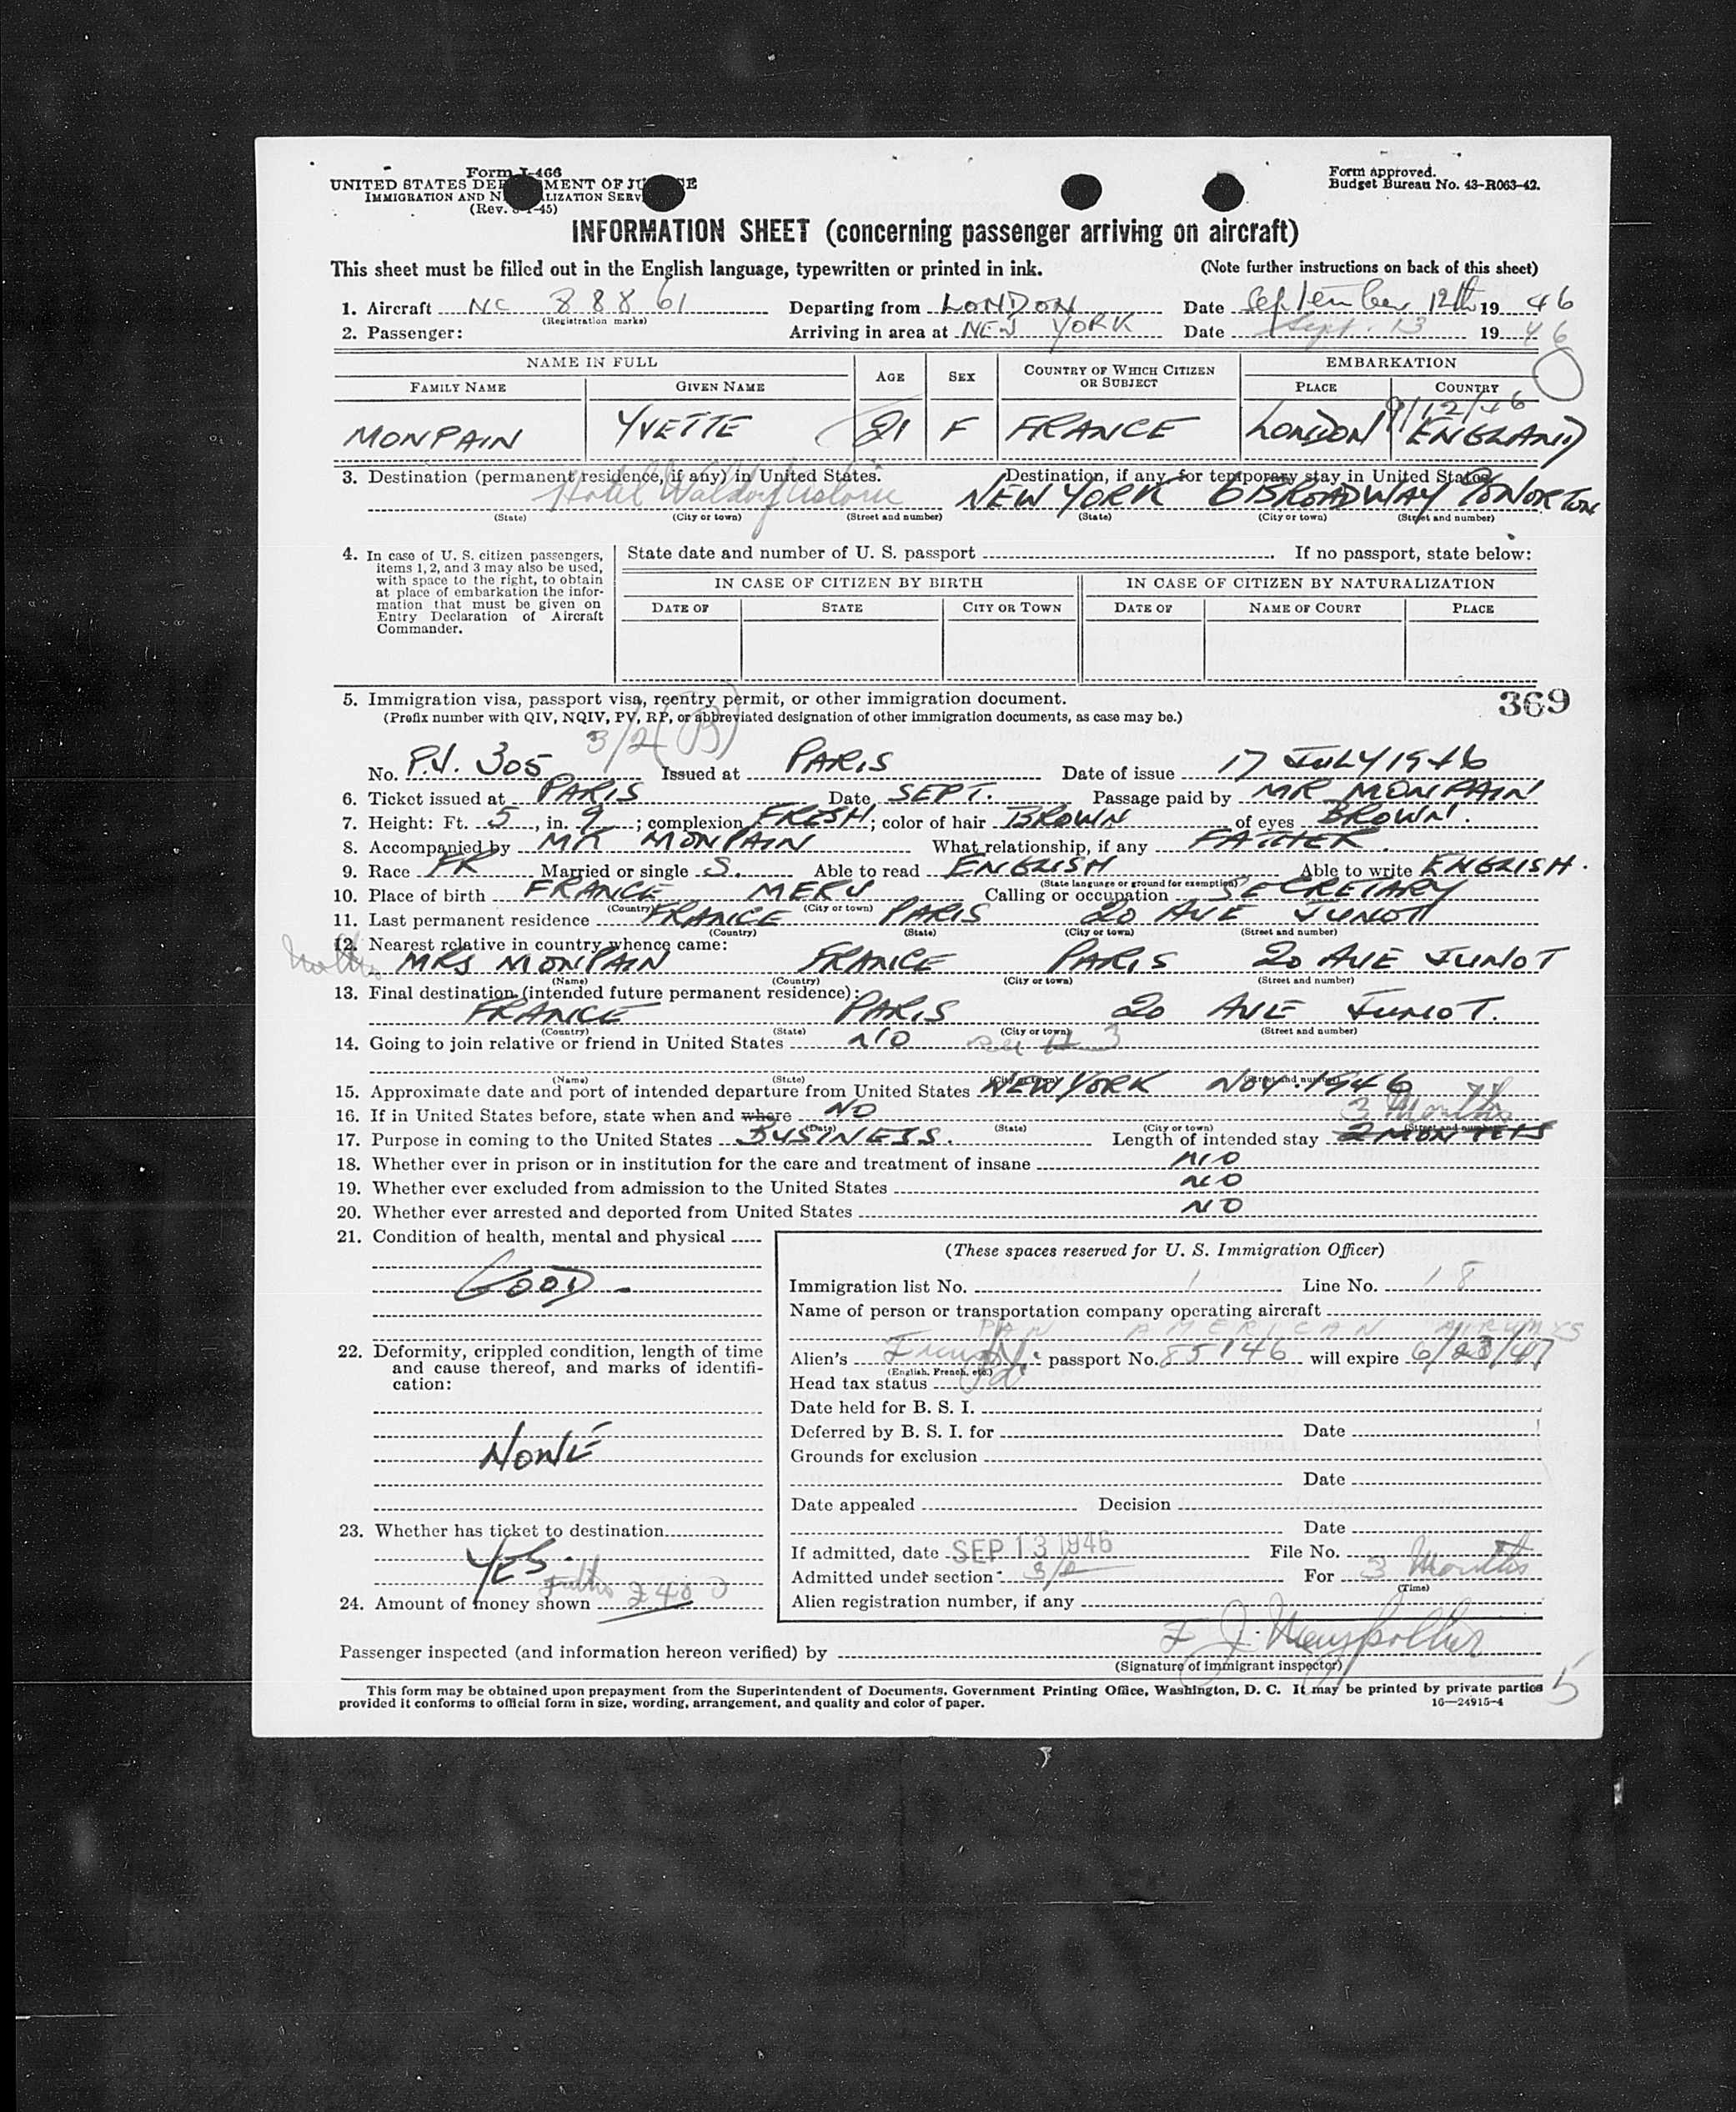 Form I-466
UNITED STATES DEPARTMENT OF JUSTICE
IMMIGRATION AND NATURALIZATION SERVICE
(Rev. 8-1-45)
Form approved.
Budget Bureau No. 43-R063-42.
INFORMATION SHEET (concerning passenger arriving on aircraft)
This sheet must be filled out in the English language, typewritten or printed in ink. (Note further instructions on back of this sheet)
1. Aircraft NC 88861 Departing from LONDON Date September 12th 1946
(Registration marks)
2. Passenger: Arriving in area at NEW YORK Date Sept. 13 1946
NAME IN FULL AGE SEX COUNTRY OF WHICH CITIZEN OR SUBJECT EMBARKATION
FAMILY NAME GIVEN NAME PLACE COUNTRY
9/12/46
MONPAIN YVETTE 21 F FRANCE LONDON ENGLAND
3. Destination (permanent residence, if any) in United States. Destination, if any, for temporary stay in United States
Hotel Waldorf Astoria NEW YORK 6 BROADWAY
(State) (City or town) (Street and number) (State) (City or town) (Street and number)
4. In case of U. S. citizen passengers, items 1, 2, and 3 may also be used, with space to the right, to obtain at place of embarkation the information that must be given on Entry Declaration of Aircraft Commander.
State date and number of U. S. passport If no passport, state below:
IN CASE OF CITIZEN BY BIRTH IN CASE OF CITIZEN BY NATURALIZATION
DATE OF STATE CITY OR TOWN DATE OF NAME OF COURT PLACE
5. Immigration visa, passport visa, reentry permit, or other immigration document. 369
(Prefix number with QIV, NQIV, PV, RP, or abbreviated designation of other immigration documents, as case may be.)
3/2 (B)
No. P.V. 305 Issued at PARIS Date of issue 17 JULY 1946
6. Ticket issued at PARIS Date SEPT. Passage paid by MR MONPAIN
7. Height: Ft. 5, in. 9; complexion FRESH; color of hair BROWN of eyes BROWN.
8. Accompanied by MR MONPAIN What relationship, if any FATHER.
9. Race FR Married or single S. Able to read ENGLISH Able to write ENGLISH.
(State language or ground for exemption)
10. Place of birth FRANCE MERU Calling or occupation SECRETARY
(Country) (City or town)
11. Last permanent residence FRANCE PARIS 20 AVE JUNOT
(Country) (State) (City or town) (Street and number)
12. Nearest relative in country whence came:
mother MRS MONPAIN FRANCE PARIS 20 AVE JUNOT
(Name) (Country) (City or town) (Street and number)
13. Final destination (intended future permanent residence):
FRANCE PARIS 20 AVE JUNOT.
(Country) (State) (City or town) (Street and number)
14. Going to join relative or friend in United States NO see # 3
(Name) (State) (City or town) (Street and number)
15. Approximate date and port of intended departure from United States NEW YORK NOV. 1946
16. If in United States before, state when and where NO 3 Months
(Date) (State) (City or town) (Street and number)
17. Purpose in coming to the United States BUSINESS. Length of intended stay 2 MONTHS
18. Whether ever in prison or in institution for the care and treatment of insane NO
19. Whether ever excluded from admission to the United States NO
20. Whether ever arrested and deported from United States NO
21. Condition of health, mental and physical
GOOD
22. Deformity, crippled condition, length of time and cause thereof, and marks of identification:
NONE
23. Whether has ticket to destination
YES.
24. Amount of money shown
(These spaces reserved for U. S. Immigration Officer)
Immigration list No. 1 Line No. 18
Name of person or transportation company operating aircraft
PAN AMERICAN AIRWAYS
Alien's French passport No. 85146 will expire 6/23/47
(English, French, etc.)
Head tax status
Date held for B. S. I.
Deferred by B. S. I. for Date
Grounds for exclusion
Date
Date appealed Decision
Date
If admitted, date SEP 13 1946 File No.
Admitted under section 3/2 For 3 Months
(Time)
Alien registration number, if any
Passenger inspected (and information hereon verified) by
(Signature of immigrant inspector)
This form may be obtained upon prepayment from the Superintendent of Documents, Government Printing Office, Washington, D. C. It may be printed by private parties
provided it conforms to official form in size, wording, arrangement, and quality and color of paper. 16—24915-4
5